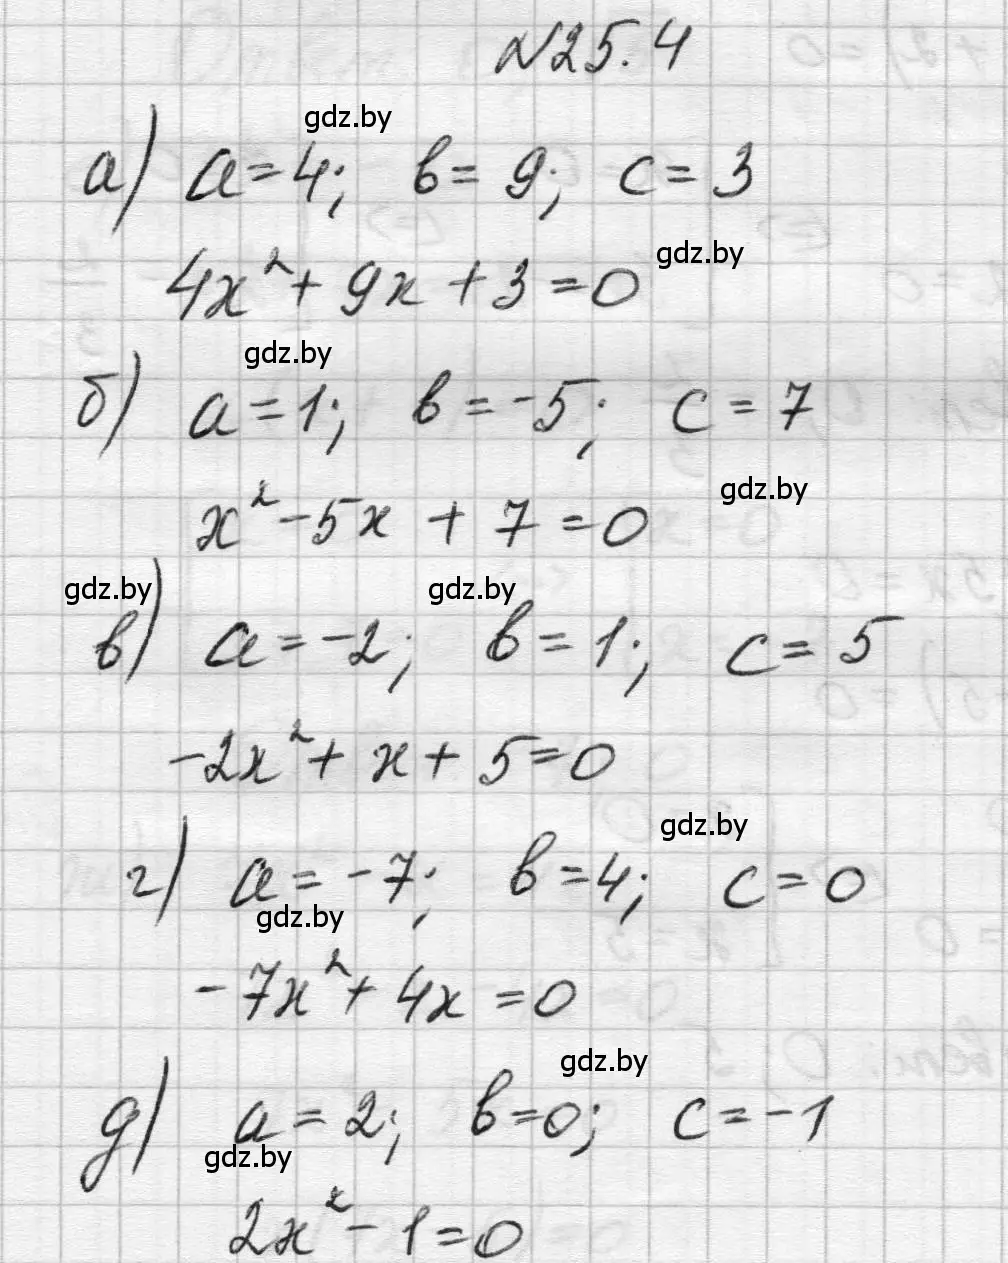 №25.4
gdz.by
а) a=4; b=9; c=3
gdz.by
4x²+9x+3=0
gdz.by
б) a=1; b=-5; c=7
gdz.by
x²-5x+7=0
gdz.by gdz.by
в) a=-2; b=1; c=5
-2x²+x+5=0
gdz.by
г) a=-7; b=4; c=0
gdz.by
-7x²+4x=0
gdz.by
д) a=2; b=0; c=-1
gdz.by
2x²-1=0